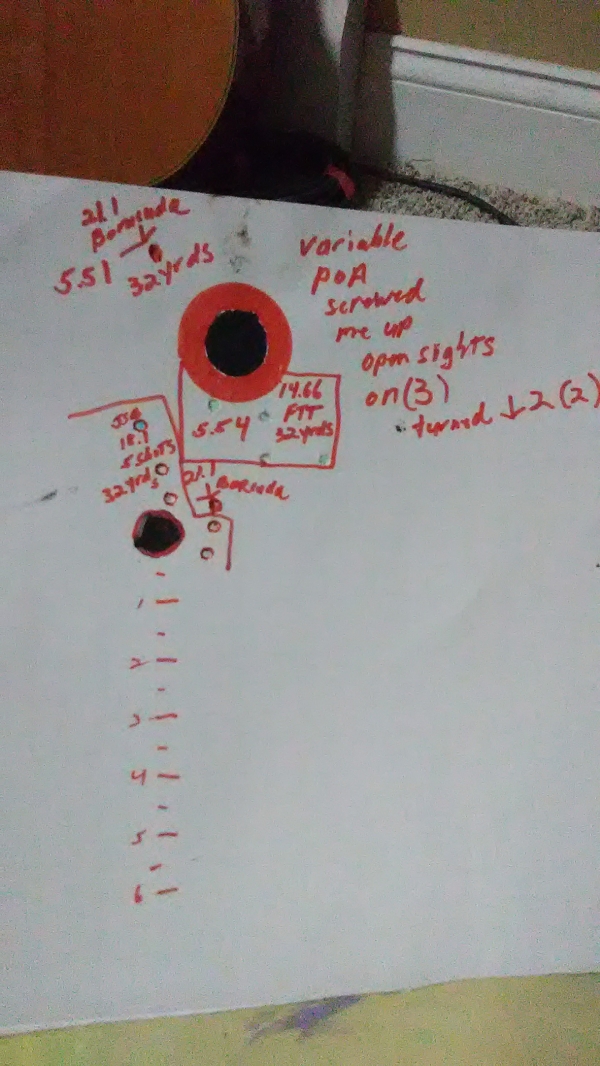 21.1
Boracuda
5.51
32yrds
variable
POA
screwed
me up
open sights
on (3)
turned ↓ 2 (2)
14.66
FTT
32yrds
5.54
JSB
18.1
5 shots
32yrds
21.1
Boracuda
1
2
3
4
5
6